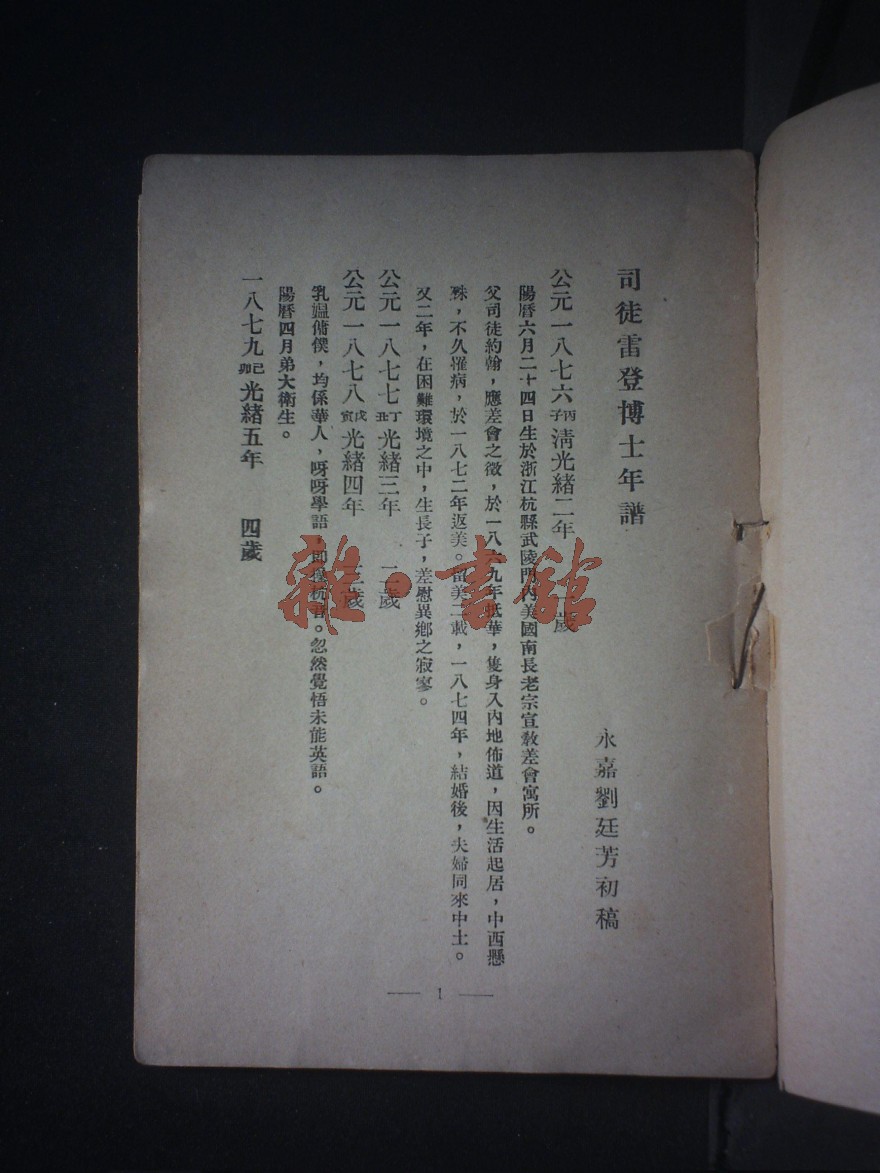 司徒雷登博士年譜
永嘉劉廷芳初稿
公元一八七六丙子清光緒二年 一歲
陽曆六月二十四日生於浙江杭縣武陵門內美國南長老宗宣教差會寓所。
父司徒約翰，應差會之徵，於一八六九年抵華，隻身入內地佈道，因生活起居，中西懸
殊，不久罹病，於一八七二年返美。留美二載，一八七四年，結婚後，夫婦同來中土。
又二年，在困難環境之中，生長子，差慰異鄉之寂寥。
公元一八七七丁丑光緒三年 二歲
公元一八七八戊寅光緒四年 三歲
乳媼傭僕，均係華人，呀呀學語，即操杭音。忽然覺悟未能英語。
陽曆四月弟大衛生。
一八七九己卯光緒五年 四歲
— 1 —
雜·書館